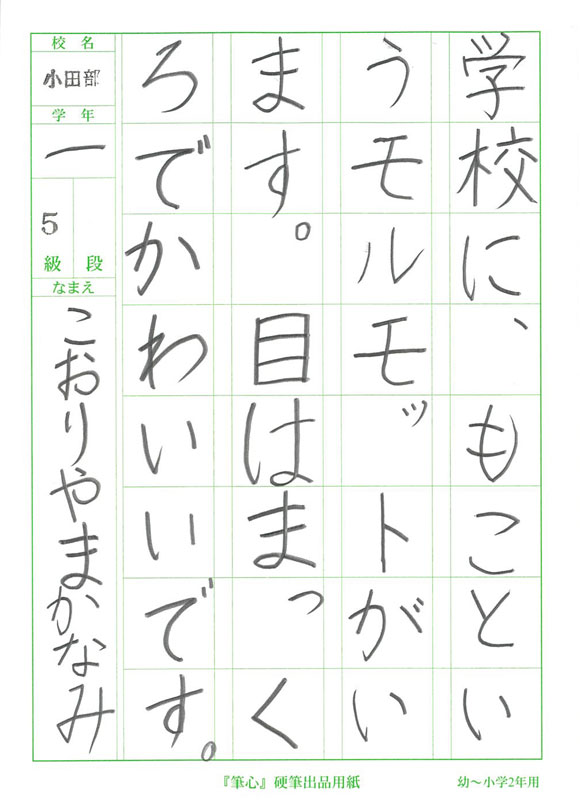 学校に、もことい
うモルモットがい
ます。目はまっく
ろでかわいいです。
校名
小田部
学年
一
5
級 段
なまえ
こおりやまかなみ
『筆心』硬筆出品用紙
幼～小学2年用